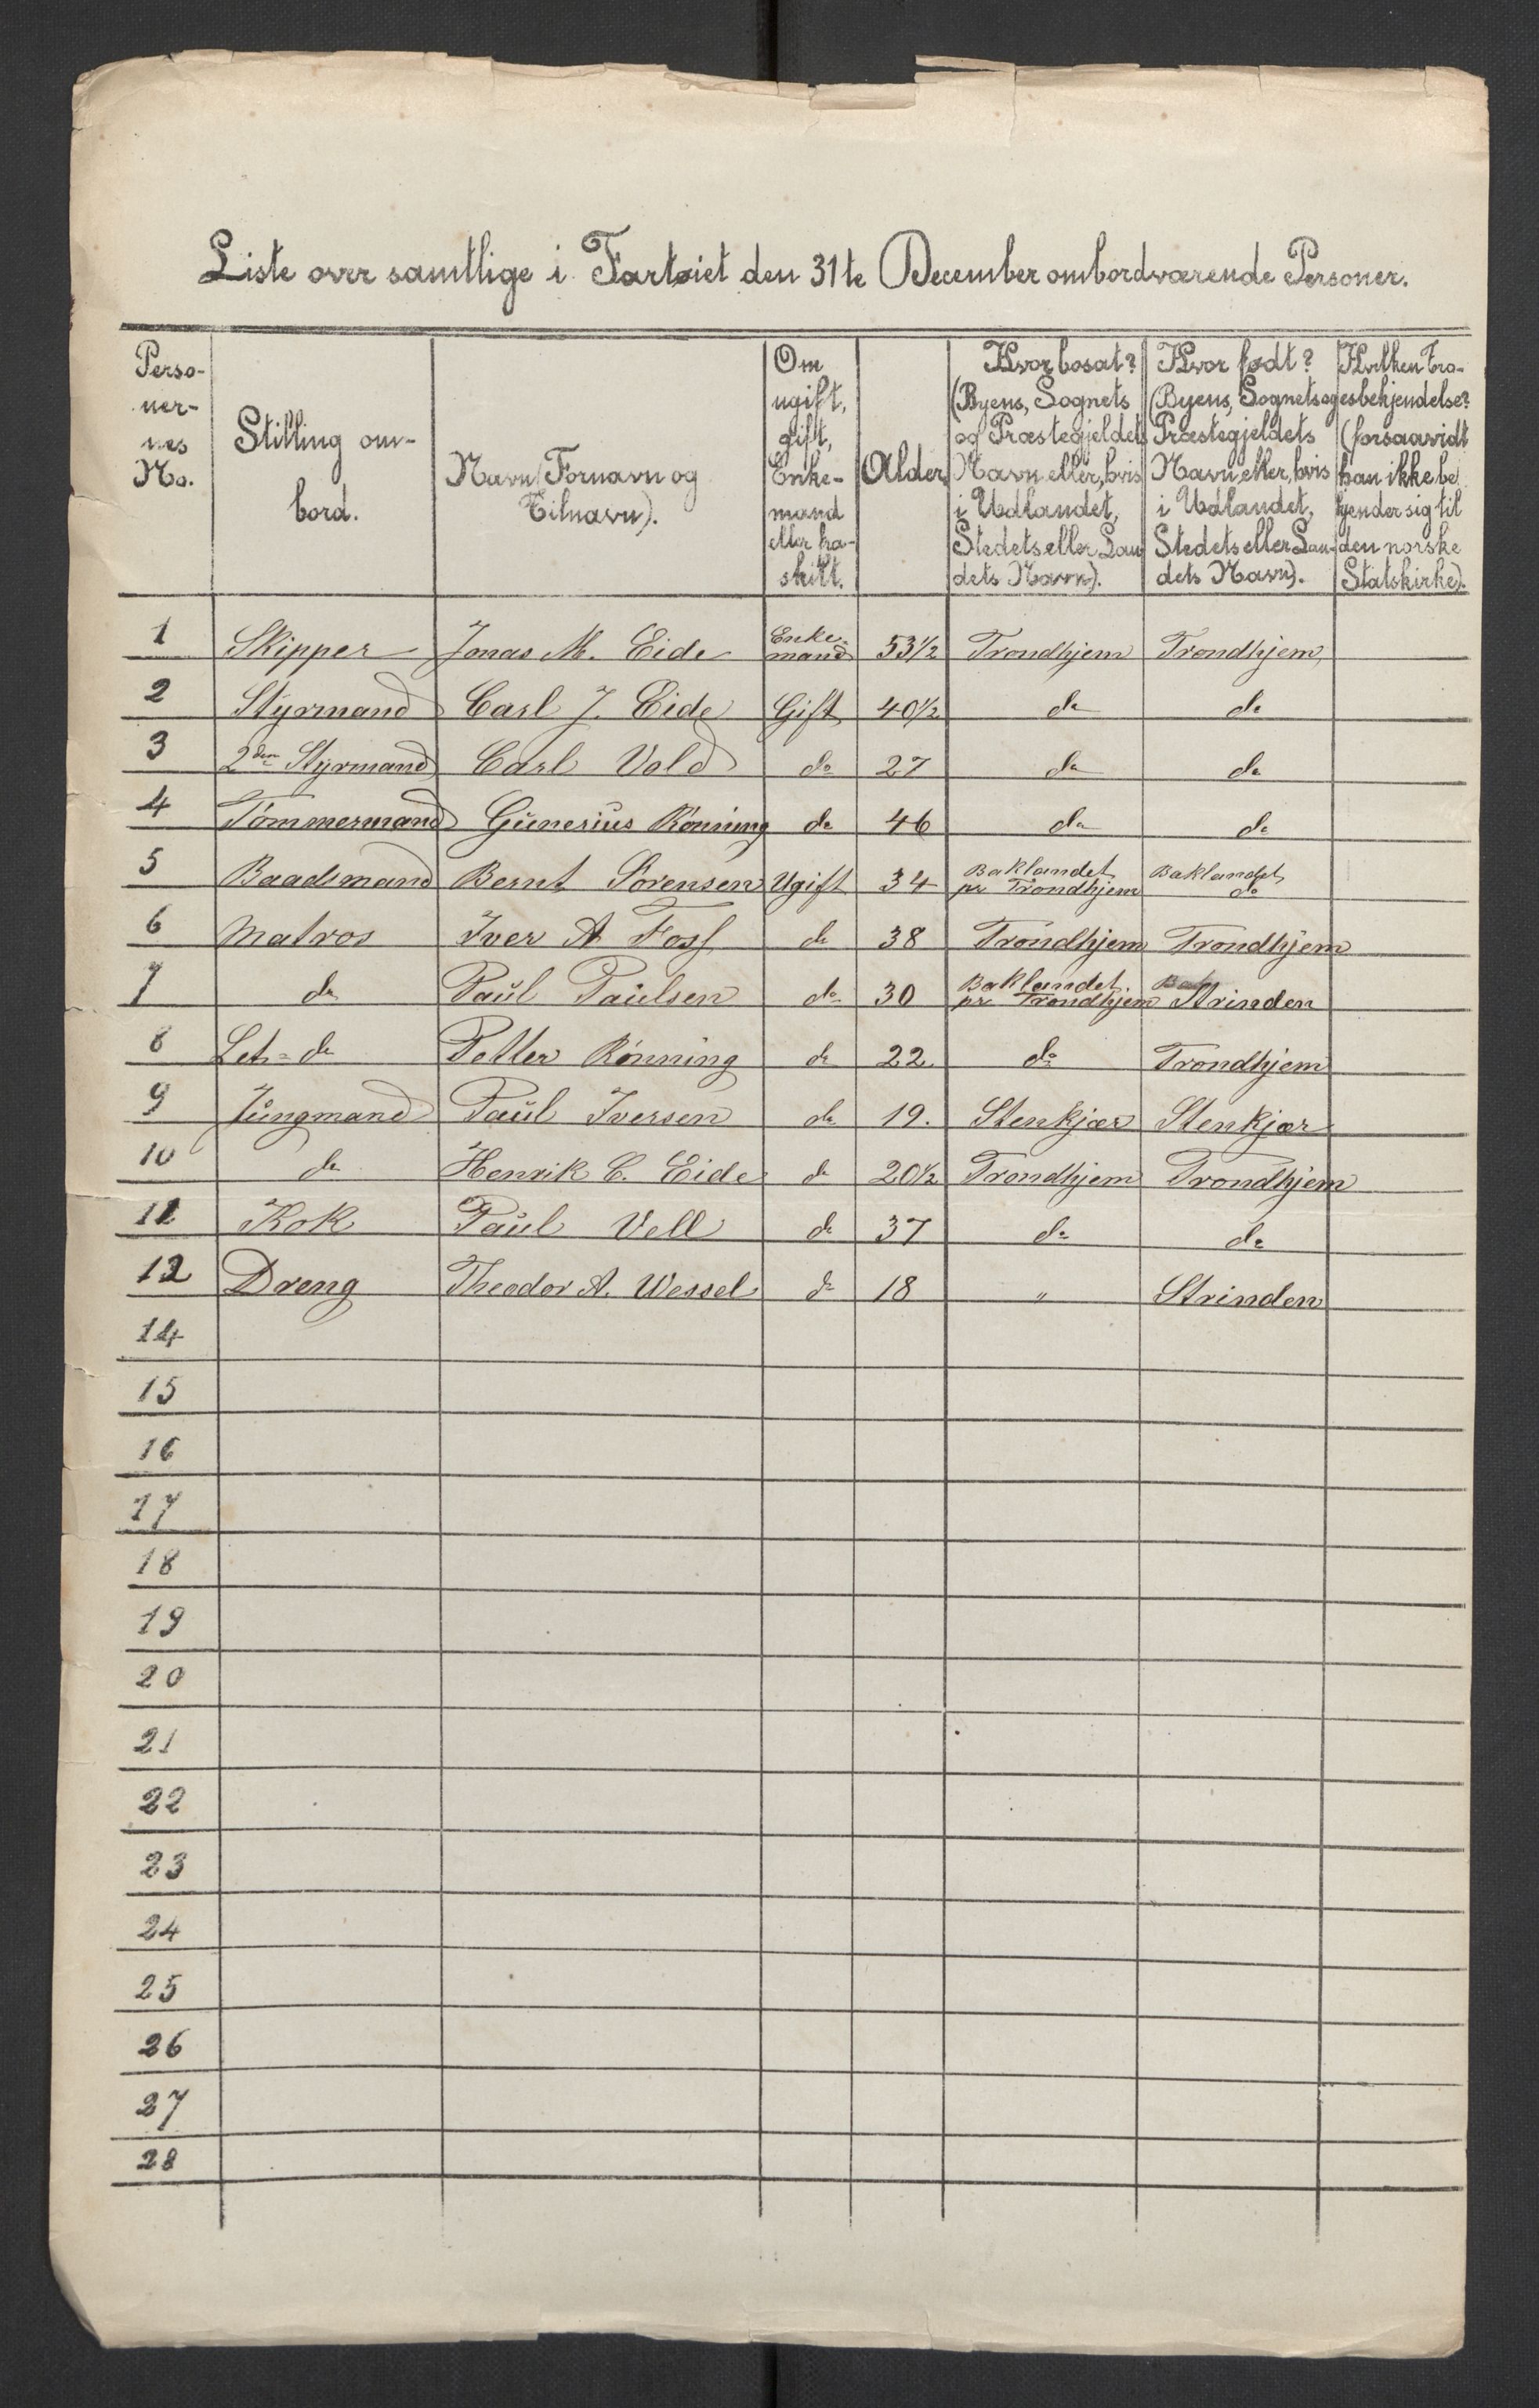 Liste over samtlige i Fartøiet den 31te December ombordværende Personer.
Perso-
ner-
nes
No.
Stilling om-
bord.
Navn (Fornavn og
Tilnavn).
Om
ugift,
gift,
Enke-
mand
eller fra-
skilt.
Alder
Hvor bosat?
(Byens, Sognets
og Præstegjeldets
Navn eller, hvis
i Udlandet,
Stedets eller Lan
dets Navn).
Hvor født?
(Byens, Sognets og
Præstegjeldets
Navn eller, hvis
i Udlandet,
Stedets eller Lan-
dets Navn).
Hvilken Tro-
esbekjendelse?
(forsaavidt
han ikke be
kjender sig til
den norske
Statskirke).
1 Skipper Jonas M. Eide Enke-mand 53½ Trondhjem Trondhjem
2 Styrmand Carl J. Eide Gift 40½ do do
3 2den Styrmand Carl Vold do 27 do do
4 Tömmermand Gunerius Rönning do 46 do do
5 Baadsmand Bernt Sörensen Ugift 34 Baklandet pr Trondhjem Baklandet do
6 Matros Iver A Foss do 38 Trondhjem Trondhjem
7 do Paul Paulsen do 30 Baklandet pr Trondhjem Bak Strinden
8 Let- do Petter Rönning do 22. do Trondhjem
9 Jungmand Paul Iversen do 19. Stenkjær Stenkjær
10 do Henrik C. Eide do 20½ Trondhjem Trondhjem
11 Kok Paul Vell do 37 do do
12 Dreng Theodor A. Wessel do 18 " Strinden
14
15
16
17
18
19
20
21
22
23
24
25
26
27
28